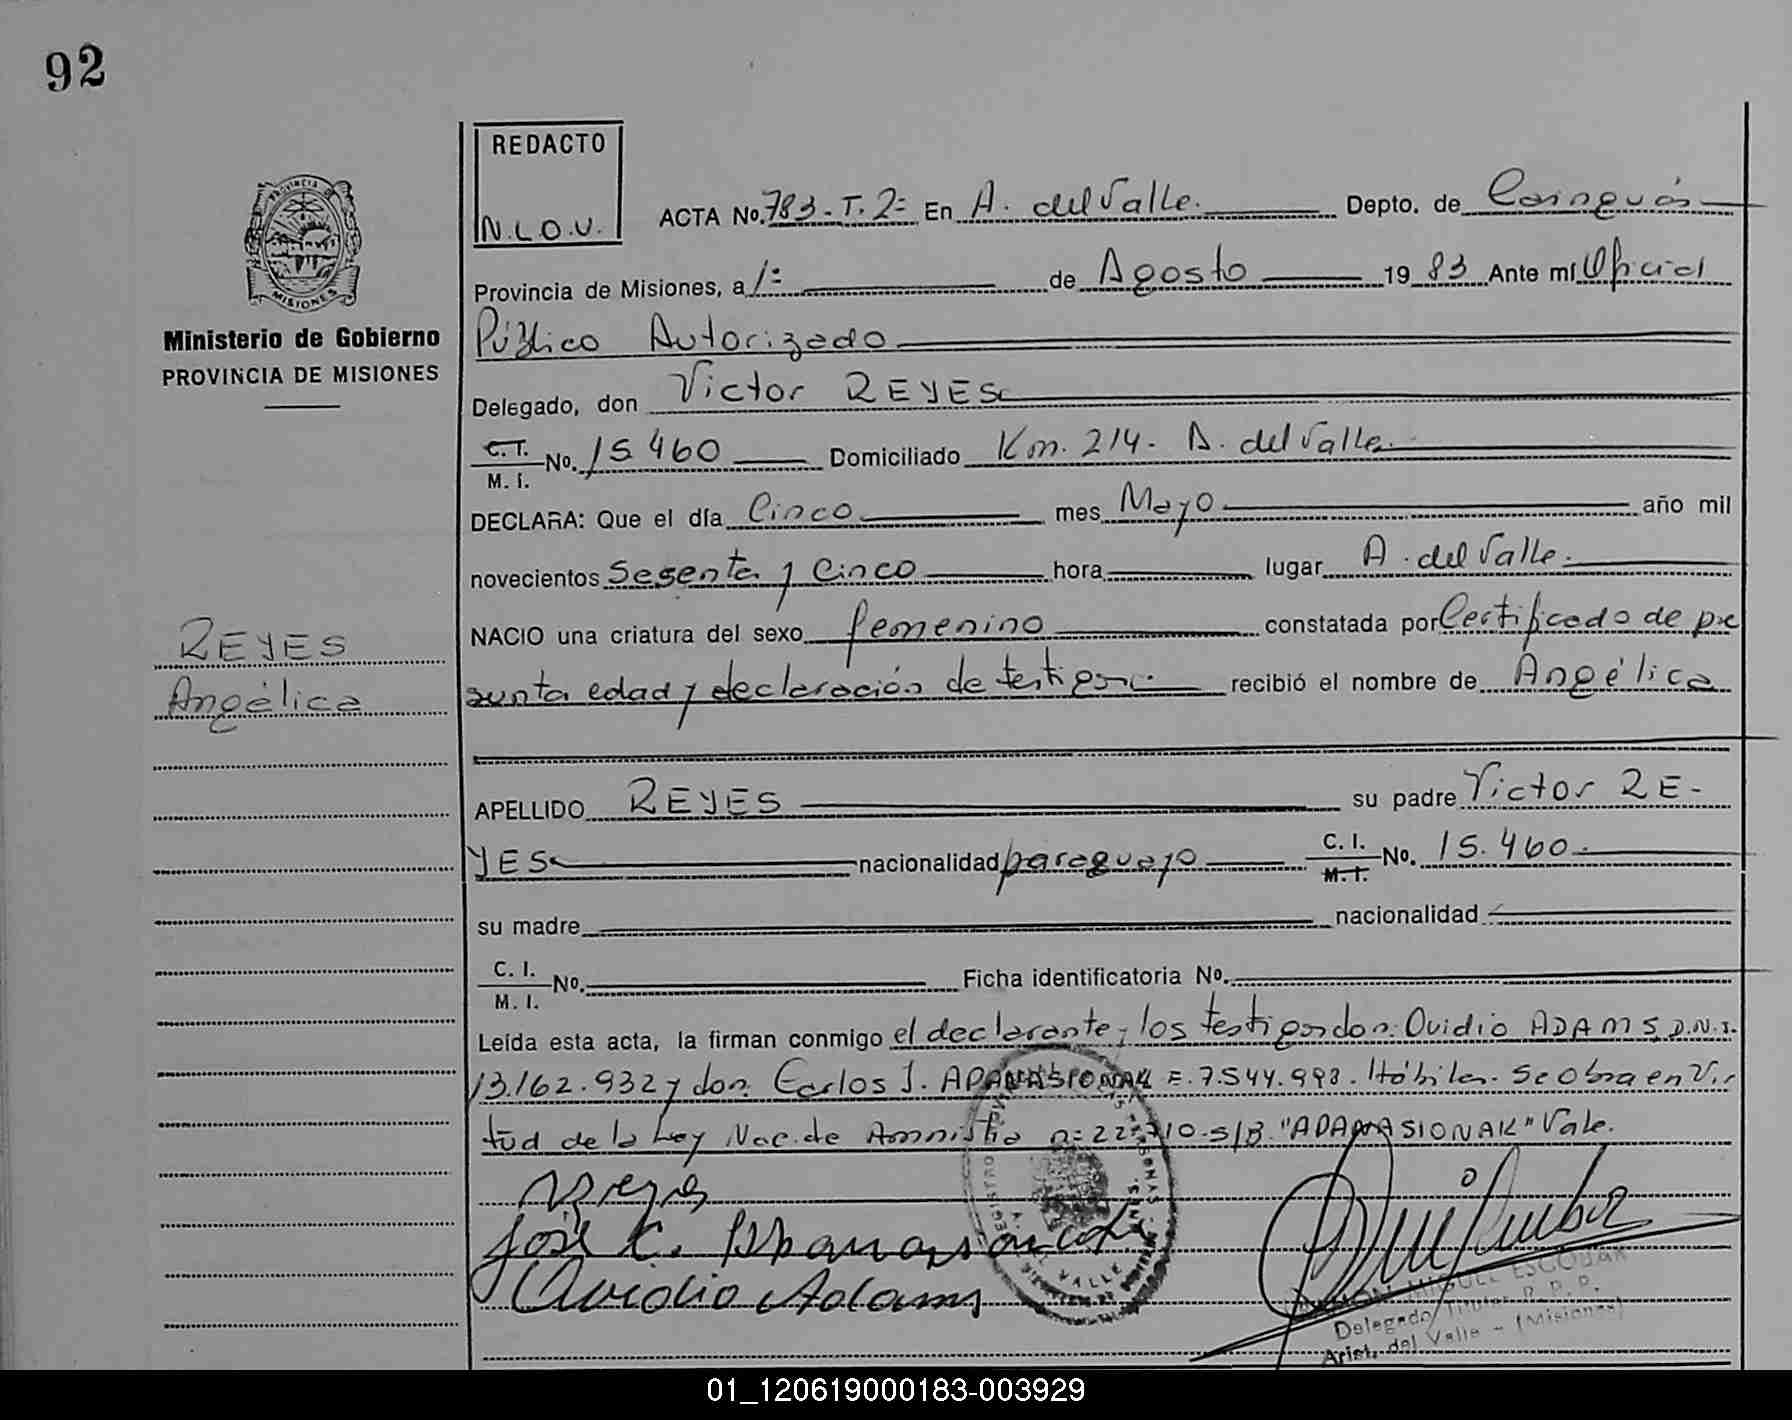 92
REDACTO
N.L.O.V.
ACTA No. 783-T.2= En A. del Valle. Depto. de Cainguás
Provincia de Misiones, a 1= de Agosto 19 83 Ante mí Oficial
Público Autorizado
Delegado, don Victor REYES
C.I. M.I. No. 15.460 Domiciliado Km. 214- A. del Valle.
DECLARA: Que el día Cinco mes Mayo año mil
novecientos Sesenta y Cinco hora lugar A. del Valle.
NACIO una criatura del sexo femenino constatada por Certificado de pre
sunta edad y declaración de testigos. recibió el nombre de Angélica
APELLIDO REYES su padre Victor RE-
YES nacionalidad paraguayo C. I. M. I. No. 15.460.
su madre nacionalidad
C. I. M. I. No. Ficha identificatoria No.
Leída esta acta, la firman conmigo el declarante y los testigos don: Ovidio ADAMS, D.N.I.
13.162.932 y don: Carlos J. E. 7.544.993. Hábiles. Se obra en Vir
tud de la Ley Nac. de Amnistía n= 22.710-S/B. "APANASIONAK" Vale.
José C.
Ovidio Adams
MIGUEL ESCOBAR
Delegado Titular R. P. P.
Arist. del Valle - (Misiones)
PROVINCIA DE
MISIONES
Ministerio de Gobierno
PROVINCIA DE MISIONES
REYES
Angélica
01_120619000183-003929